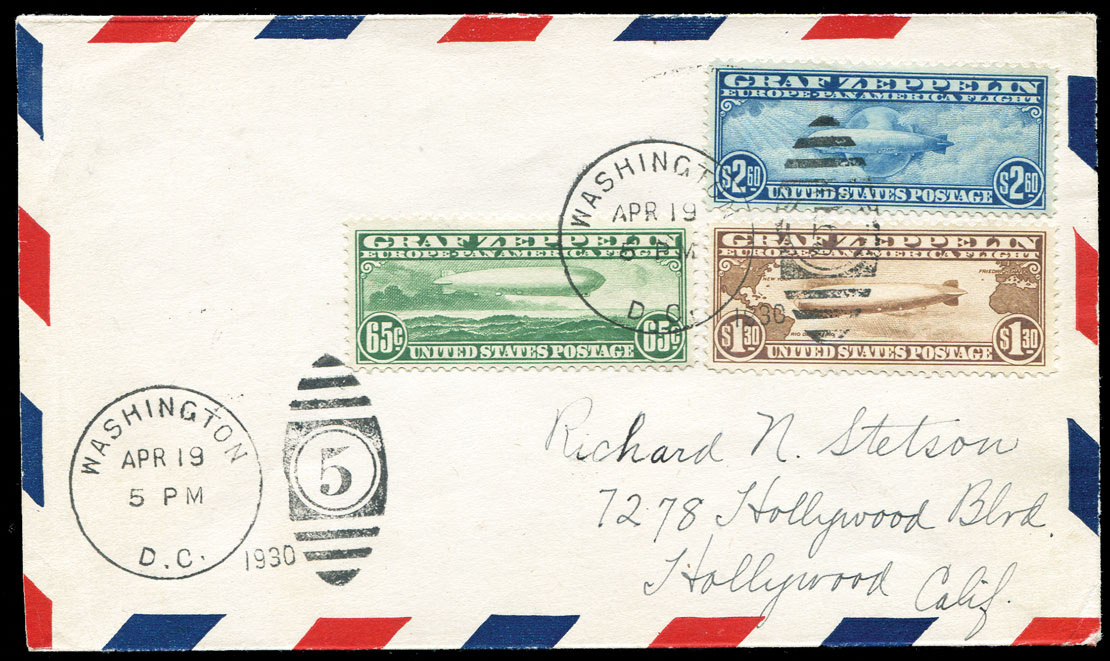 GRAF ZEPPELIN
EUROPE-PAN AMERICA FLIGHT
$2.60 $2.60
UNITED STATES POSTAGE
WASHINGTON
APR 19
5 PM
D.C.
1930
5
GRAF ZEPPELIN
EUROPE-PAN AMERICA FLIGHT
65¢ 65¢
UNITED STATES POSTAGE
GRAF ZEPPELIN
EUROPE-PAN AMERICA FLIGHT
$1.30 $1.30
UNITED STATES POSTAGE
WASHINGTON
APR 19
5 PM
D.C.
1930
5
Richard N. Stetson
7278 Hollywood Blvd
Hollywood Calif.